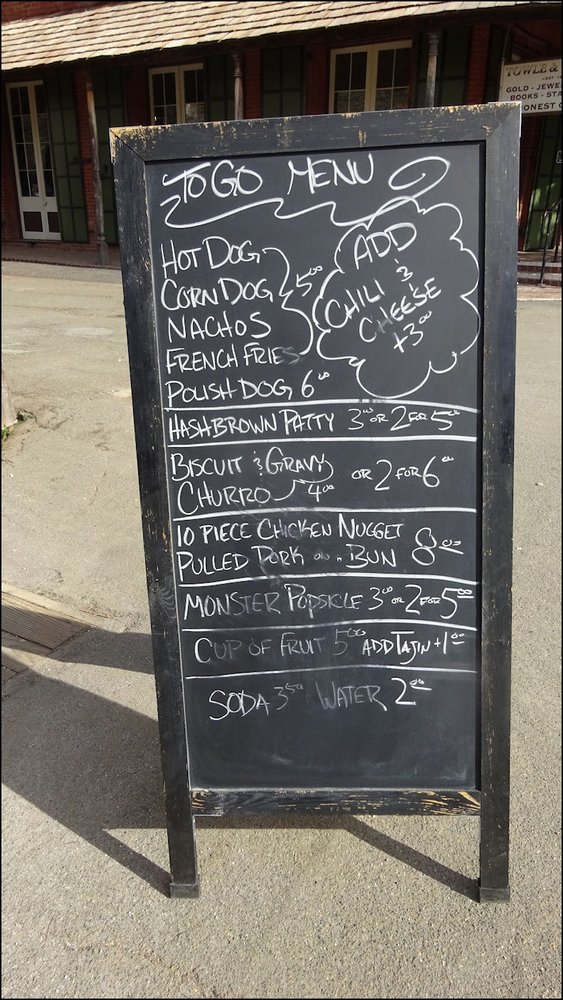 TOWLE &
GOLD - JEWE
BOOKS - STA
ONEST
TO GO MENU
HOT DOG
CORN DOG
NACHOS
FRENCH FRIES
5.00
ADD
CHILI &
CHEESE
+3.00
POLISH DOG 6.00
HASHBROWN PATTY 3.00 OR 2 FOR 5.00
BISCUIT & GRAVY
CHURRO 4.00
OR 2 FOR 6.00
10 PIECE CHICKEN NUGGET
PULLED PORK ON A BUN
8.00
MONSTER POPSICLE 3.00 OR 2 FOR 5.00
CUP OF FRUIT 5.00 ADD TAJIN +1.00
SODA 3.50 WATER 2.00